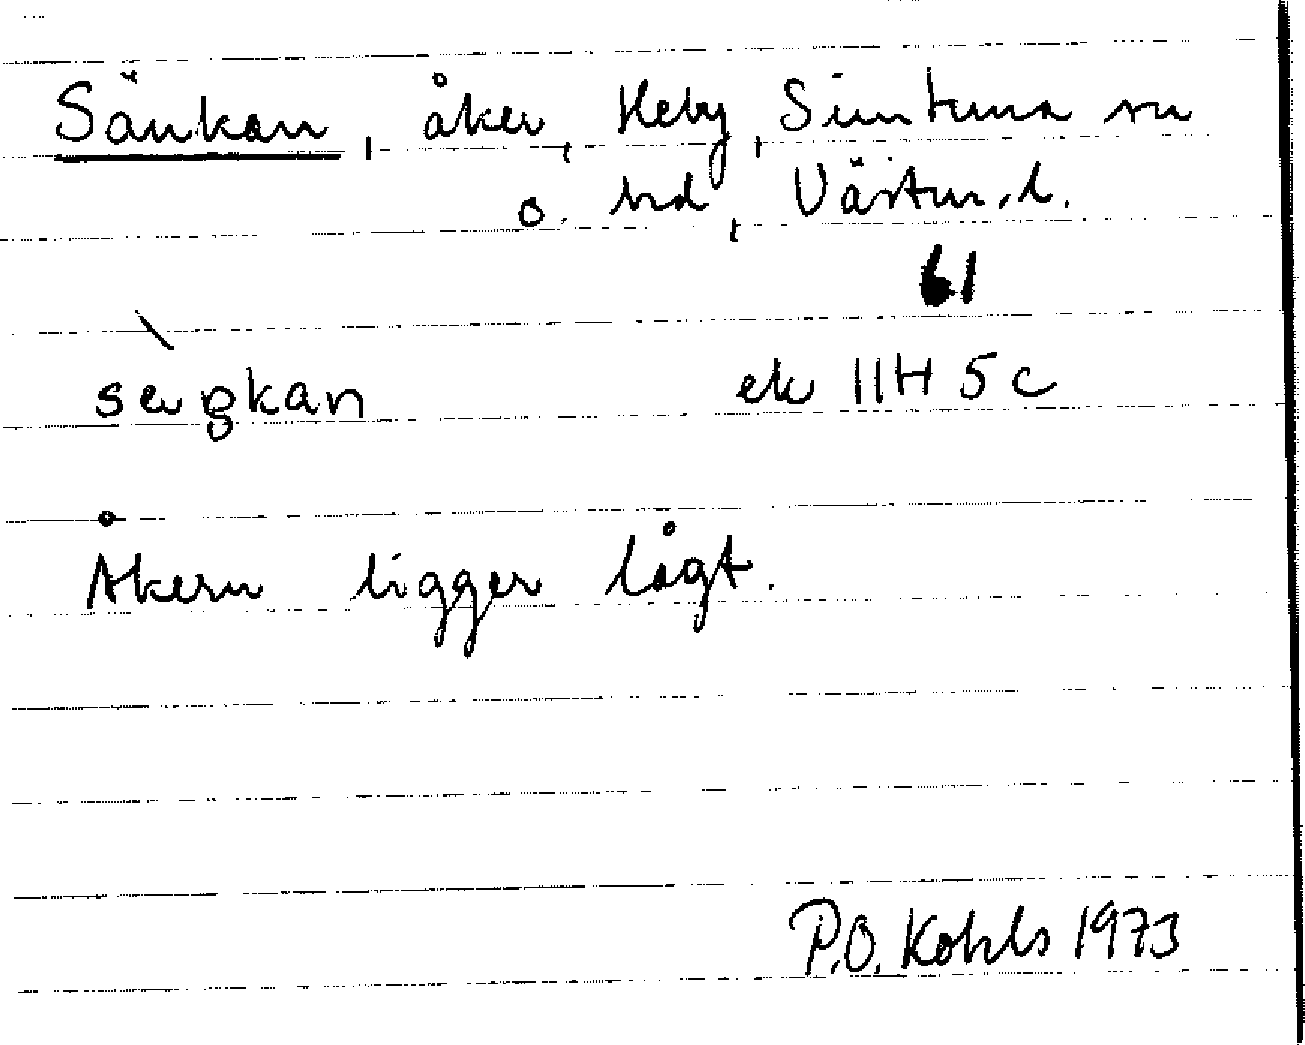 Sänkan, åker, Heby, Simtuna sn
o. hd, Västm. l.
61
seŋkan ek 11H 5c
Åkern ligger lågt.
P.O. Kohls 1973